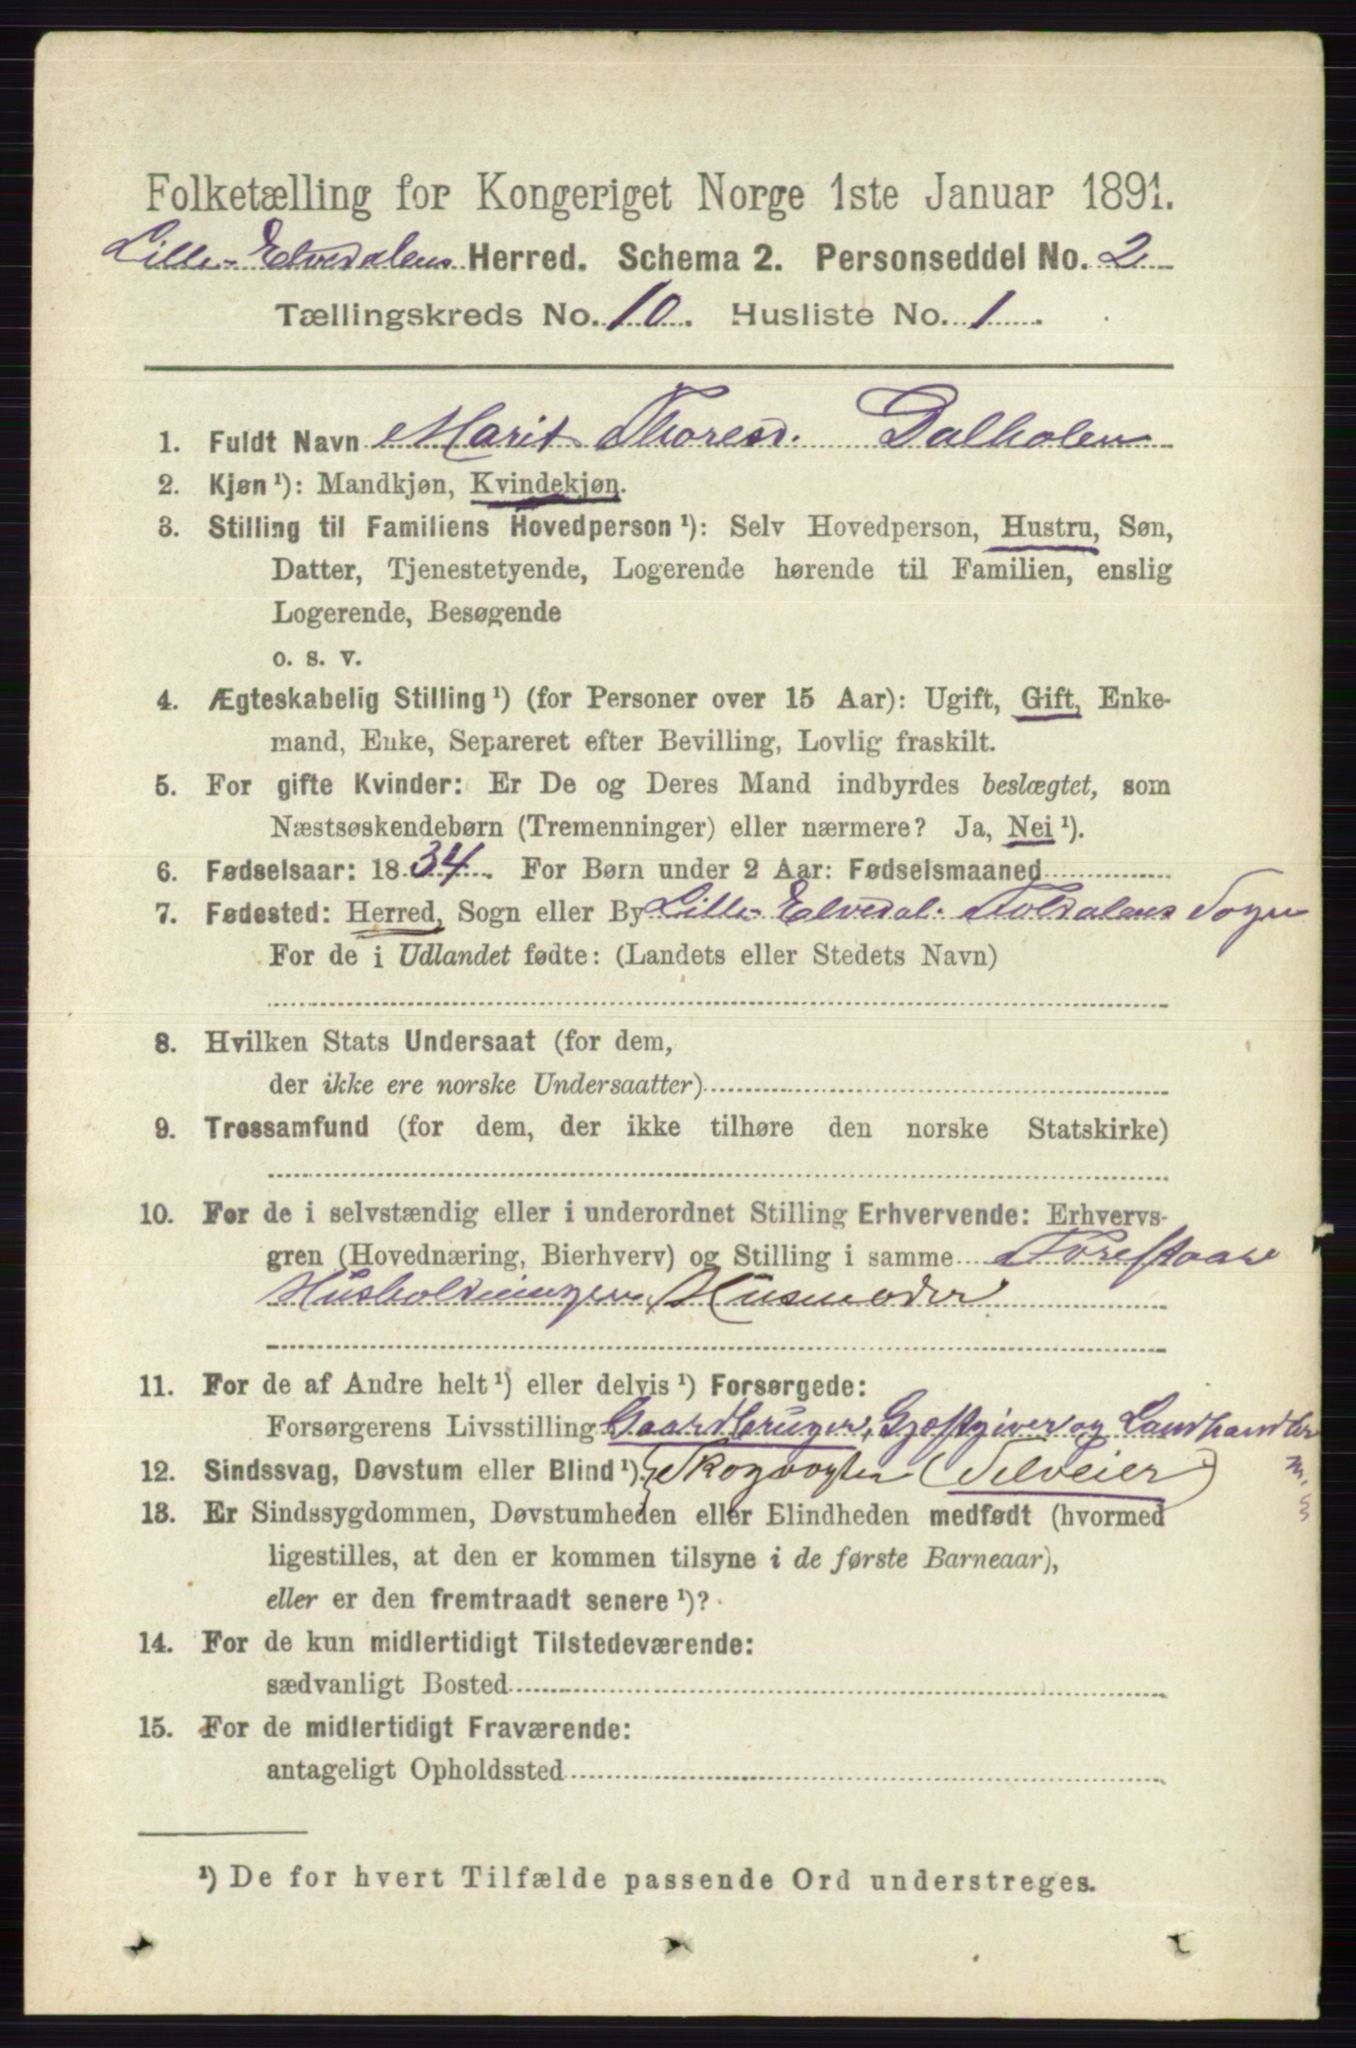 Folketælling for Kongeriget Norge 1ste Januar 1891.
Lille-Elvedalens Herred. Schema 2. Personseddel No. 2
Tællingskreds No. 10. Husliste No. 1.
1. Fuldt Navn Marit Thoresd. Dalholen
2. Kjøn ¹): Mandkjøn, Kvindekjøn.
3. Stilling til Familiens Hovedperson ¹): Selv Hovedperson, Hustru, Søn,
Datter, Tjenestetyende, Logerende hørende til Familien, enslig
Logerende, Besøgende
o. s. v.
4. Ægteskabelig Stilling ¹) (for Personer over 15 Aar): Ugift, Gift, Enke-
mand, Enke, Separeret efter Bevilling, Lovlig fraskilt.
5. For gifte Kvinder: Er De og Deres Mand indbyrdes beslægtet, som
Næstsøskendebørn (Tremenninger) eller nærmere? Ja, Nei ¹).
6. Fødselsaar: 1834. For Børn under 2 Aar: Fødselsmaaned
7. Fødested: Herred, Sogn eller By Lille-Elvedal. Foldalens Sogn
For de i Udlandet fødte: (Landets eller Stedets Navn)
8. Hvilken Stats Undersaat (for dem,
der ikke ere norske Undersaatter)
9. Trossamfund (for dem, der ikke tilhøre den norske Statskirke)
10. For de i selvstændig eller i underordnet Stilling Erhvervende: Erhvervs-
gren (Hovednæring, Bierhverv) og Stilling i samme Forestaar
Husholdningen Husmoder
11. For de af Andre helt ¹) eller delvis ¹) Forsørgede:
Forsørgerens Livsstilling Gaardbruger, Gjæstgiver og Landhandler
12. Sindssvag, Døvstum eller Blind ¹). Skogvogter (Selveier) m.
13. Er Sindssygdommen, Døvstumheden eller Blindheden medfødt (hvormed
ligestilles, at den er kommen tilsyne i de første Barneaar),
eller er den fremtraadt senere ¹)?
14. For de kun midlertidigt Tilstedeværende:
sædvanligt Bosted
15. For de midlertidigt Fraværende:
antageligt Opholdssted
¹) De for hvert Tilfælde passende Ord understreges.